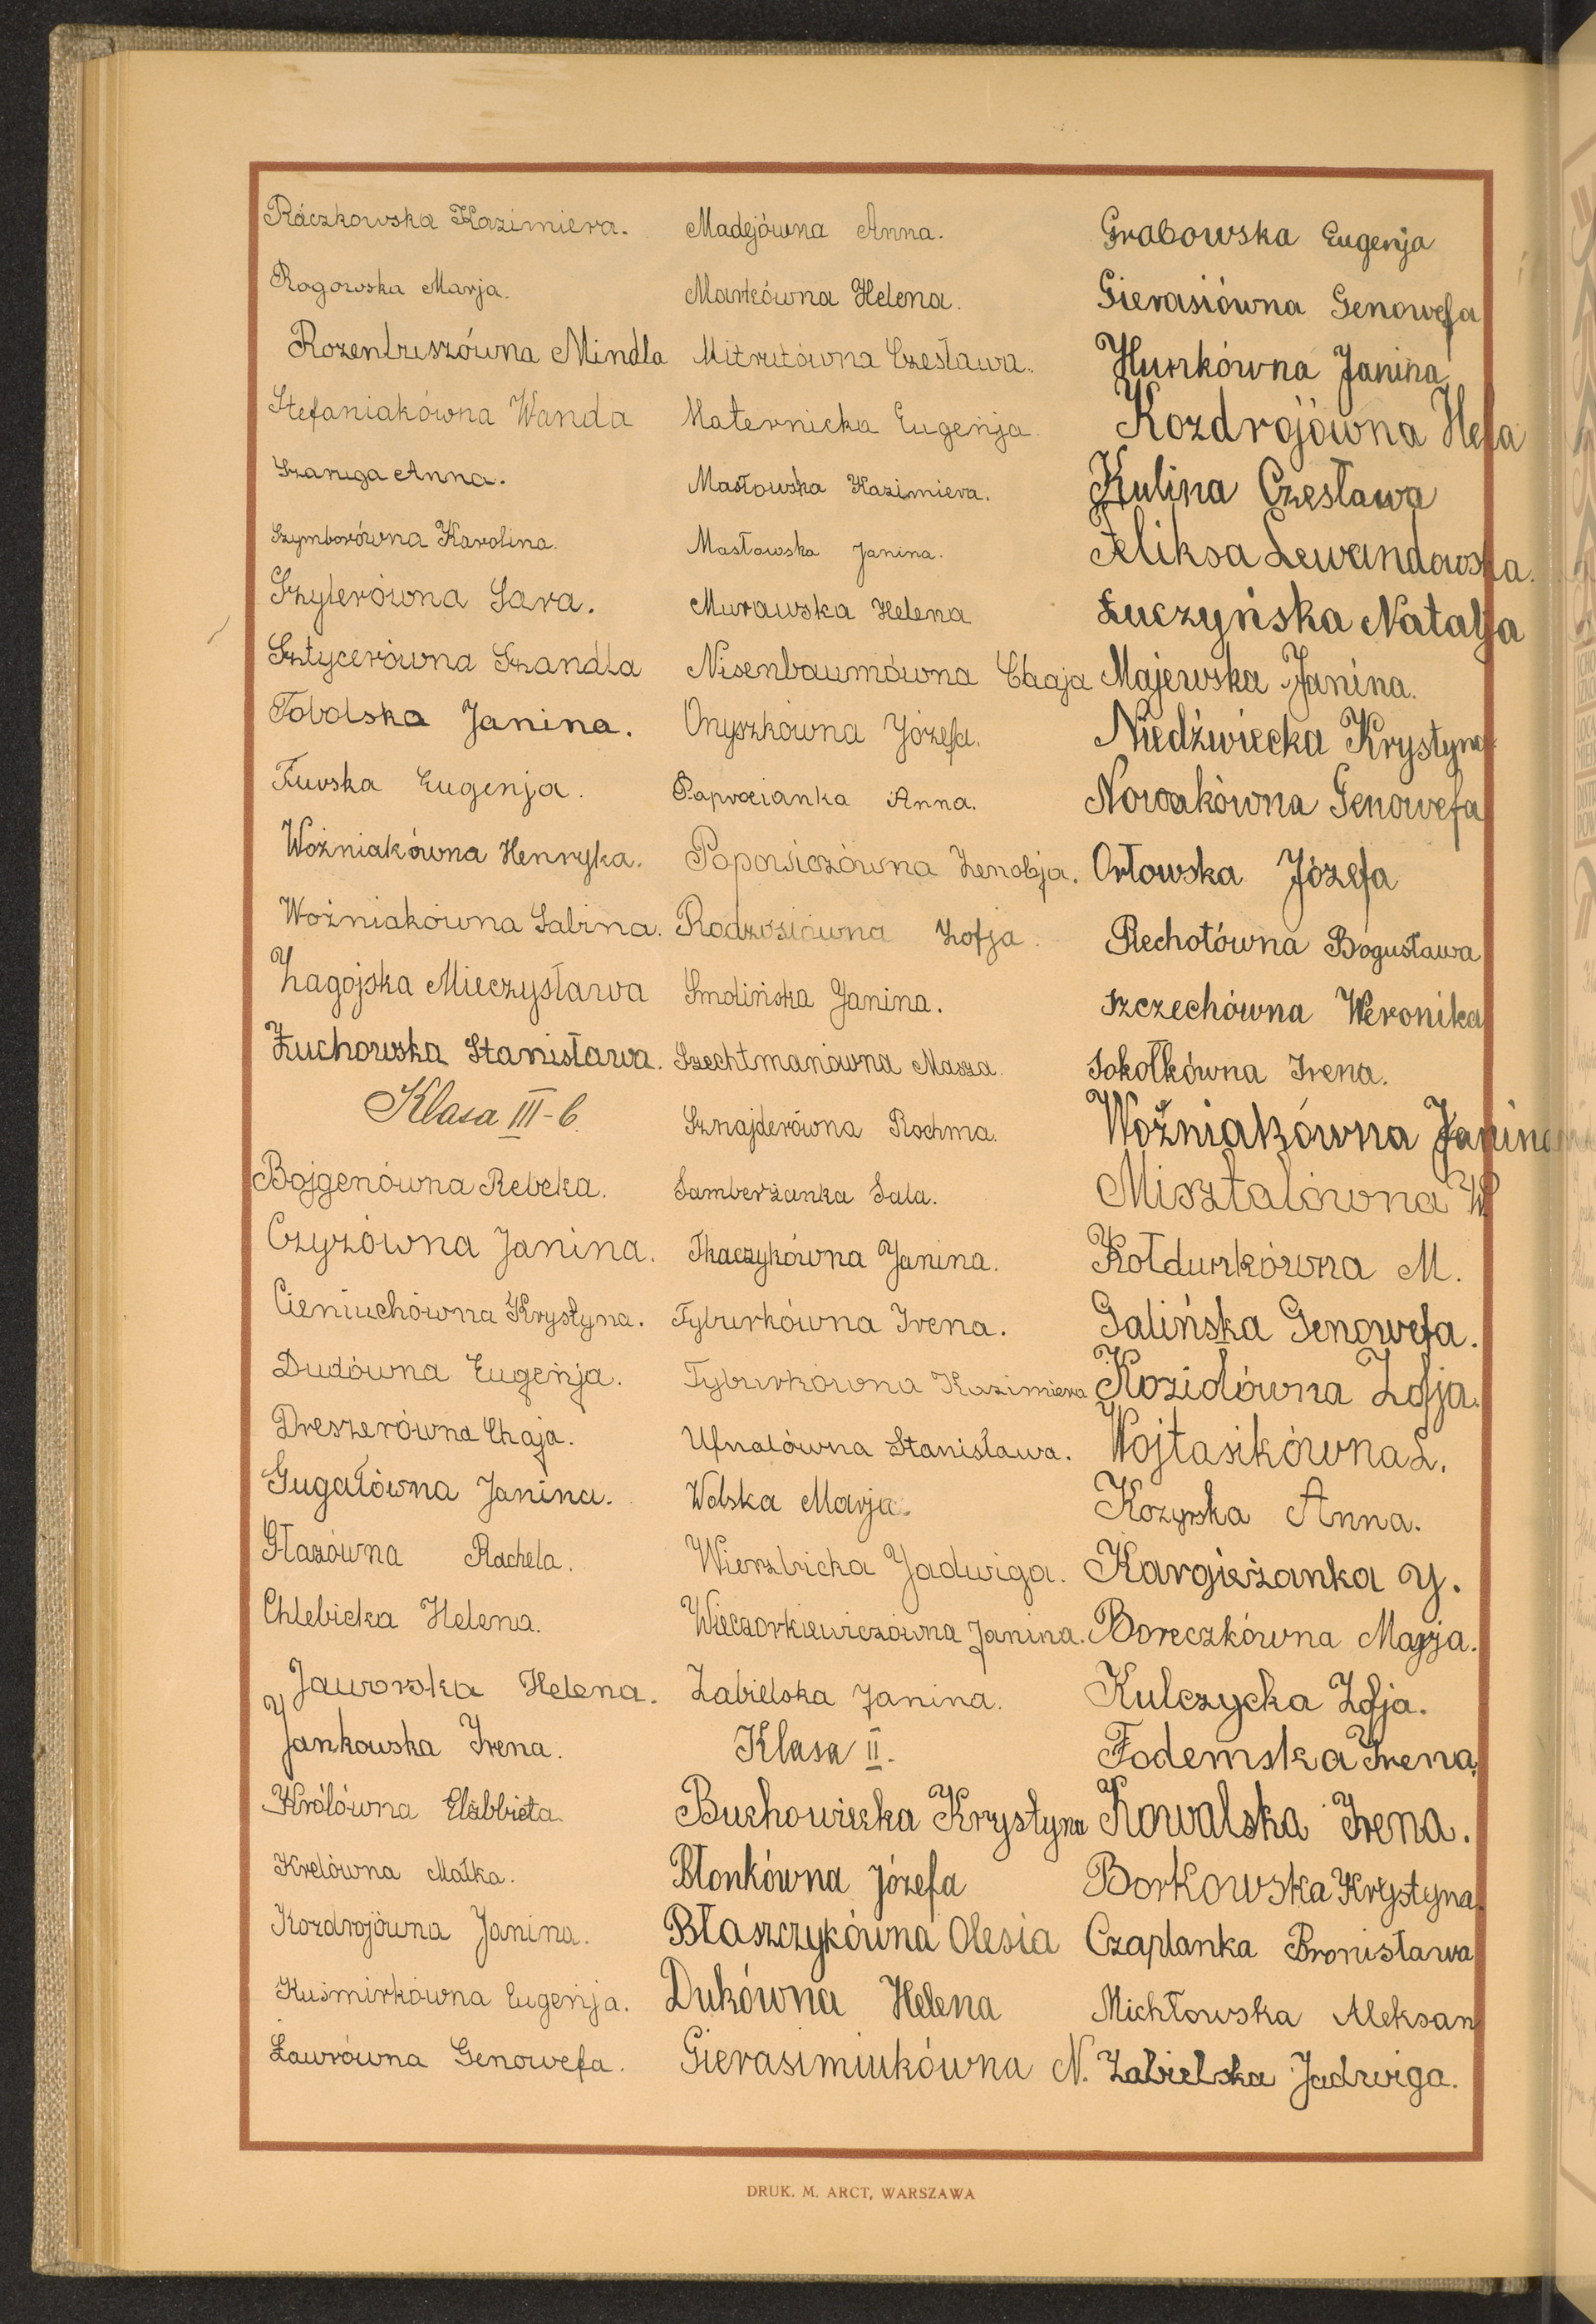 Ráczkowska Kazimiera.
Rogowska Marja.
Rozenbuszówna Mindla
Stefaniakówna Wanda
Szaruga Anna.
Szymborówna Karolina.
Szylerówna Sara.
Sztycerówna Szandla
Tobolska Janina.
Turska Eugenja.
Woźniakówna Henryka.
Woźniakówna Sabina.
Zagojska Mieczysława
Żuchowska Stanisława.
Klasa III-b.
Bojgenówna Rebeka.
Czyżówna Janina.
Cieniuchówna Krystyna.
Dudówna Eugenja.
Dreszerówna Chaja.
Gugałówna Janina.
Głazówna Rachela.
Chlebicka Helena.
Jaworska Helena.
Jankowska Irena.
Królówna Elżbbieta
Krelówna Małka.
Kozdrojówna Janina.
Kuśmirkówna Eugenja.
Ławrówna Genowefa.
Madejówna Anna.
Markówna Helena.
Mitrutówna Czesława.
Maternicka Eugenja.
Masłowska Kazimiera.
Masłowska Janina.
Murawska Helena
Nisenbaumówna Chaja
Onyszkówna Józefa.
Paprocianka Anna.
Popowiczówna Zenobja.
Rodzosiówna Zofja.
Smolińska Janina.
Szechtmanówna Masza.
Sznajderówna Rochma.
Samberżanka Sala.
Tkaczykówna Janina.
Tyburkówna Irena.
Tyburkówna Kazimiera
Ufnalówna Stanisława.
Wolska Marja.
Wierzbicka Jadwiga.
Wieczorkiewiczówna Janina.
Zabielska Janina.
Klasa II.
Buchowiecka Krystyna
Błonkówna Józefa
Błaszczykówna Olesia
Dukówna Helena
Gierasimiukówna N.
Grabowska Eugenja
Gierasiówna Genowefa
Hunkówna Janina
Kozdrojówna Hela
Kulina Czesława
Feliksa Lewandowska.
Łuczyńska Natalja
Majewska Janina.
Niedźwiecka Krystyna
Nowakówna Genowefa
Orłowska Józefa
Piechotówna Bogusława
Szczechówna Weronika
Sokołkówna Irena.
Woźniakówna Janina
Misztalówna W
Kołdunkówna M.
Galińska Genowefa.
Kozidówna Zofja.
Wojtasikówna L.
Kozyrska Anna.
Kargieżanka J.
Boreczkówna Marja.
Kulczycka Zofja.
Todemska Irena,
Kowalska Irena.
Borkowska Krystyna.
Czaplanka Bronisława
Michłowska Aleksan
Zabielska Jadwiga.
DRUK. M. ARCT, WARSZAWA